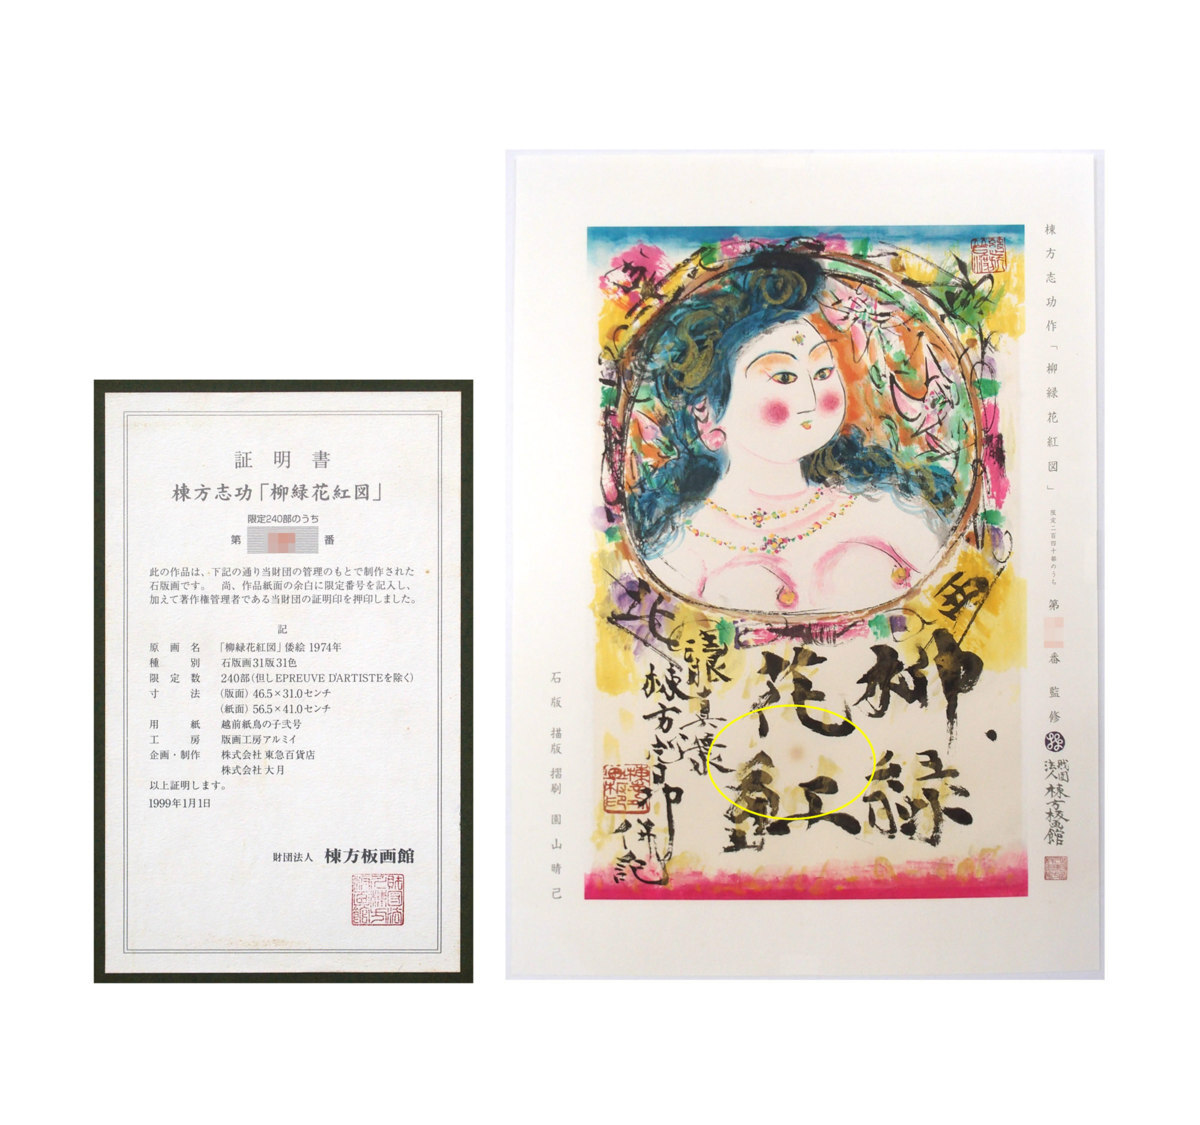 証明書
棟方志功「柳緑花紅図」
限定240部のうち
第 番
此の作品は、下記の通り当財団の管理のもとで制作された
石版画です。 尚、作品紙面の余白に限定番号を記入し、
加えて著作権管理者である当財団の証明印を押印しました。
記
原画名 「柳緑花紅図」倭絵 1974年
種別 石版画31版31色
限定数 240部(但しEPREUVE D'ARTISTEを除く)
寸法 (版面) 46.5×31.0センチ
(紙面) 56.5×41.0センチ
用紙 越前紙鳥の子弐号
工房 版画工房アルミイ
企画・制作 株式会社 東急百貨店
株式会社 大月
以上証明します。
1999年1月1日
財団法人 棟方板画館
棟方志功作「柳緑花紅図」 限定二百四十部のうち 第 番 監修
財団法人 棟方板画館
柳緑
花紅
棟方志功
併記
石版 描版 摺刷 園山晴己